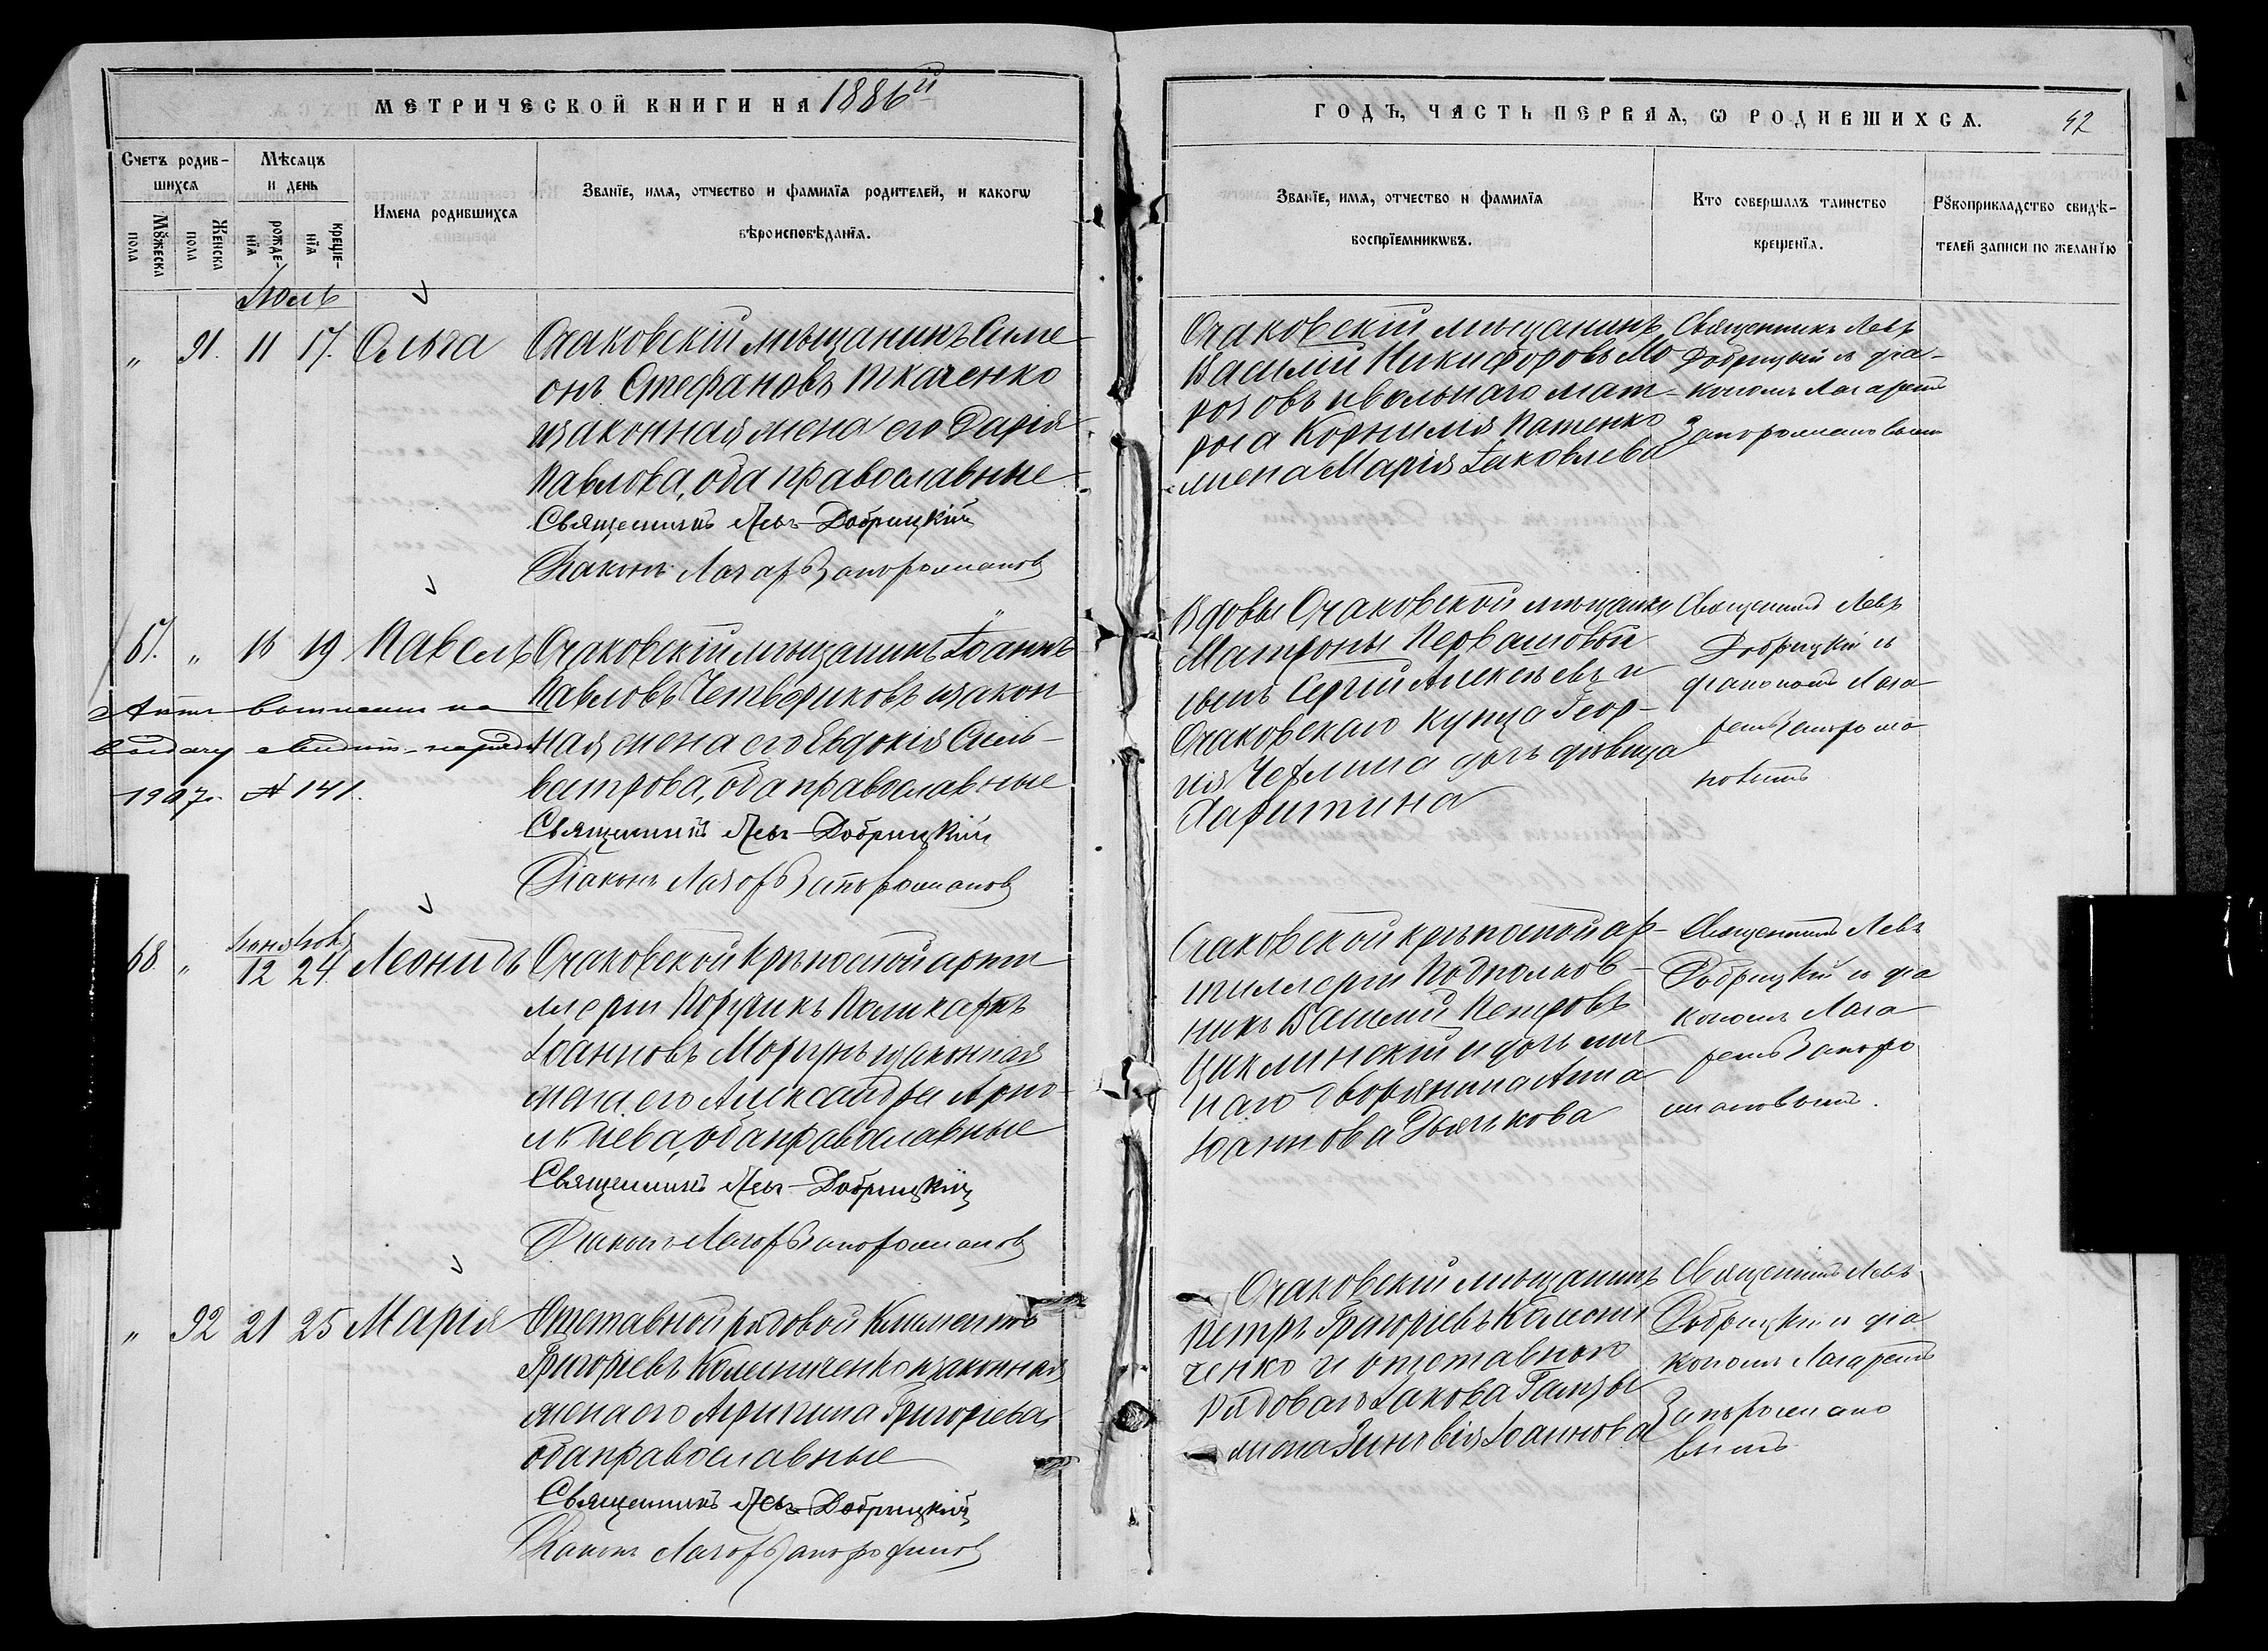 МЕТРИЧЕСКОЙ КНИГИ НА 1886й
ГОДЪ, ЧАСТЬ ПЕРВАЯ, Ѡ РОДИВШИХСЯ.
Счетъ родив-
шихся
Мѣсяцъ
и день
Мꙋжеска
пола
Женска
пола
рожде-
нїя
креще-
нїя
Имена родившихся
Званїе, имя, отчество и фамилїя родителей, и какогѡ
вѣроисповѣданїя.
Званїе, имя, отчество и фамилїя
воспрїемникѡвъ.
Кто совершалъ таинство
крещенїя.
Рꙋкоприкладство свидѣ-
телей записи по желанїю
Июль
„ 91. 11 17. Ольга
Очаковскій мѣщанинъ Симе
онъ Стефановъ Ткаченко
и законная жена его Дарія
Павлова, оба православные
Священникъ Левъ Добрицкій
Діаконъ Лазарь Запорожановъ
Очаковскій мѣщанинъ
Василій Никифоровъ Мо
розовъ и вольнаго мат-
роса Корнилія Патенко
жена Марія Іаковлева
Священникъ Левъ
Добрицкій и діа-
кономъ Лазаремъ
Запорожановымъ
67. „ 18 19 Павелъ
Очаковскій мѣщанинъ Іоаннъ
Павловъ Четвериковъ и закон
ная жена его Евдокія Силь-
вестрова, оба православные
Священникъ Левъ Добрицкій
Діаконъ Лазарь Запорожановъ
выдачу
1907г. № 141.
Вдовы Очаковской мѣщанки
Матроны Первашовой
сынъ Сергій Алексѣевъ и
Очаковскаго купца Геор-
гія дочь дѣвица
Харитина
Священникъ Левъ
Добрицкій и
діакономъ Лаза
ремъ Запорожа
новымъ
68. „ 12 24. Леонидъ
Очаковской крѣпостной арти
ллеріи Поручикъ Поликарпъ
Іоанновъ и законная
жена его Александра
оба православные
Священникъ Левъ Добрицкій
Діаконъ Лазарь Запорожановъ
Очаковской крѣпостной ар-
тиллеріи Подполков-
никъ Василій Петровъ
Циклинскій и дочь лич
наго дворянина Анна
Іоаннова Дьячкова
Священникъ Левъ
Добрицкій и діа
кономъ Лаза
ремъ Запоро
жановымъ.
„ 92 21 25 Марія
Отставной рядовой Климентъ
Григоріевъ и законная
жена его Агрипина Григоріева,
оба православные
Священникъ Левъ Добрицкій
Діаконъ Лазарь Запорожановъ
Очаковскій мѣщанинъ
Петръ Григоріевъ
ченко и отставного
рядового Іакова Ганзы
жена Зиновія Іоаннова
Священникъ Левъ
Добрицкій и діа
кономъ Лазаремъ
Запорожано
вымъ